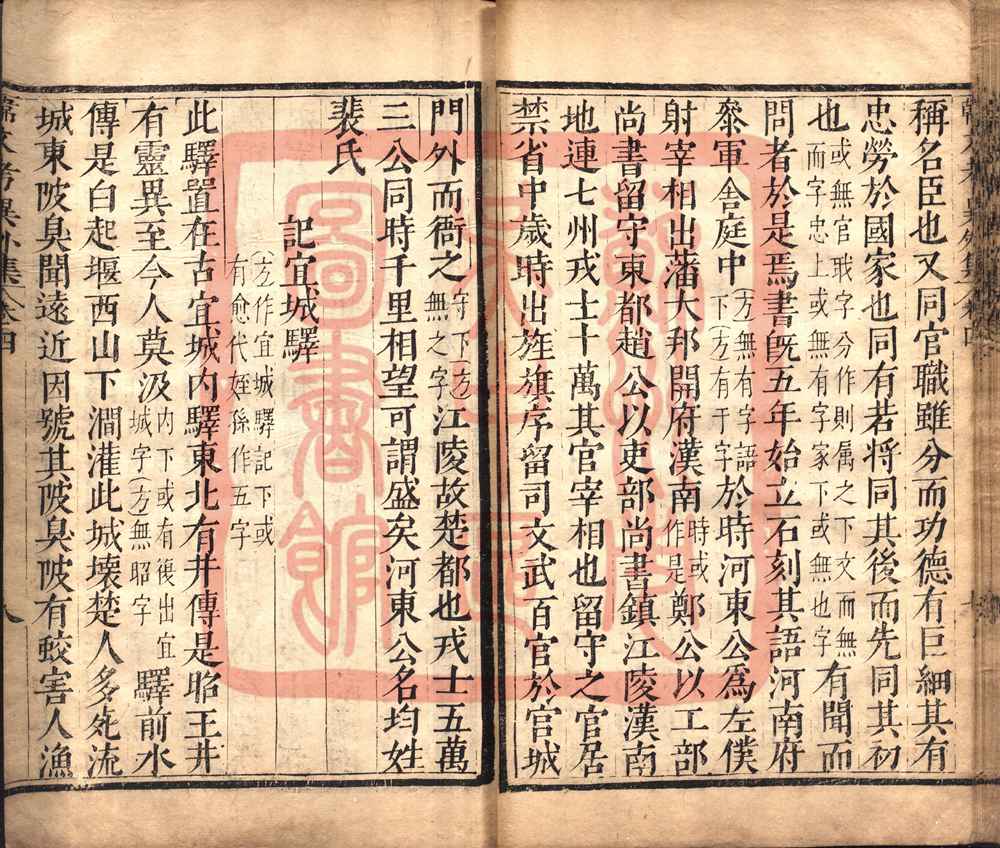 稱名臣也又同官職雖分而功德有巨細其有
忠勞於國家也同有若將同其後而先同其初
也或無官職字分作則属之下文而無而字忠上或無有字家下或無也字有聞而
問者於是焉書旣五年始立石刻其語河南府
叅軍舍庭中方無有字語下方有于字於時河東公爲左僕
射宰相出藩大邦開府漢南時或作是鄭公以工部
尚書留守東都趙公以吏部尚書鎮江陵漢南
地連七州戎士十萬其官宰相也留守之官居
禁省中歲時出旌旗序留司文武百官於宫城
門外而衙之守下方無之字江陵故楚都也戎士五萬
三公同時千里相望可謂盛矣河東公名均姓
裴氏
記宜城驛方作宜城驛記下或有愈代姪孫作五字
此驛置在古宜城内驛東北有井傳是昭王井
有靈異至今人莫汲内下或有後出宜城字方無昭字驛前水
傳是白起堰西山下澗灌此城壊楚人多死流
城東陂臭聞遠近因號其陂臭陂有蛟害人漁
韓文考異外集卷四
八
圖書館